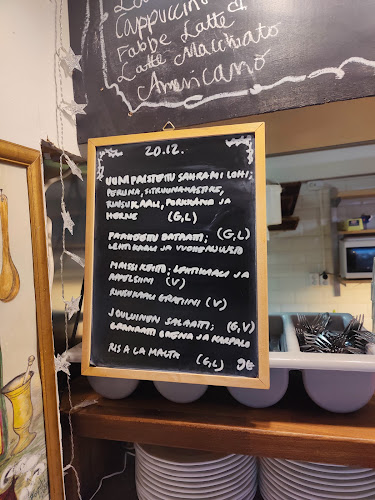 Cappuccino
Fabbe Latte &
Latte Macchiato
Americano
20.12.
UUNIPAISTETTU SAHRAMI LOHI;
PERUNA, SITRUUNAMAJONEESI,
KAALI, PORKKANA JA
HERNE (G,L)
PAAHDETTU BATAATTI; (G,L)
LEHTIKAALI JA VUOHENJUUSTO
MAISSIKEITTO; LEHTIKAALI JA
APPELSIINI (V)
RUUSUKAALI GRATIINI (V)
JOULUINEN SALAATTI; (G,V)
GRANAATTI OMENA JA KARPALO
RIS A LA MALTA (G,L) 9€